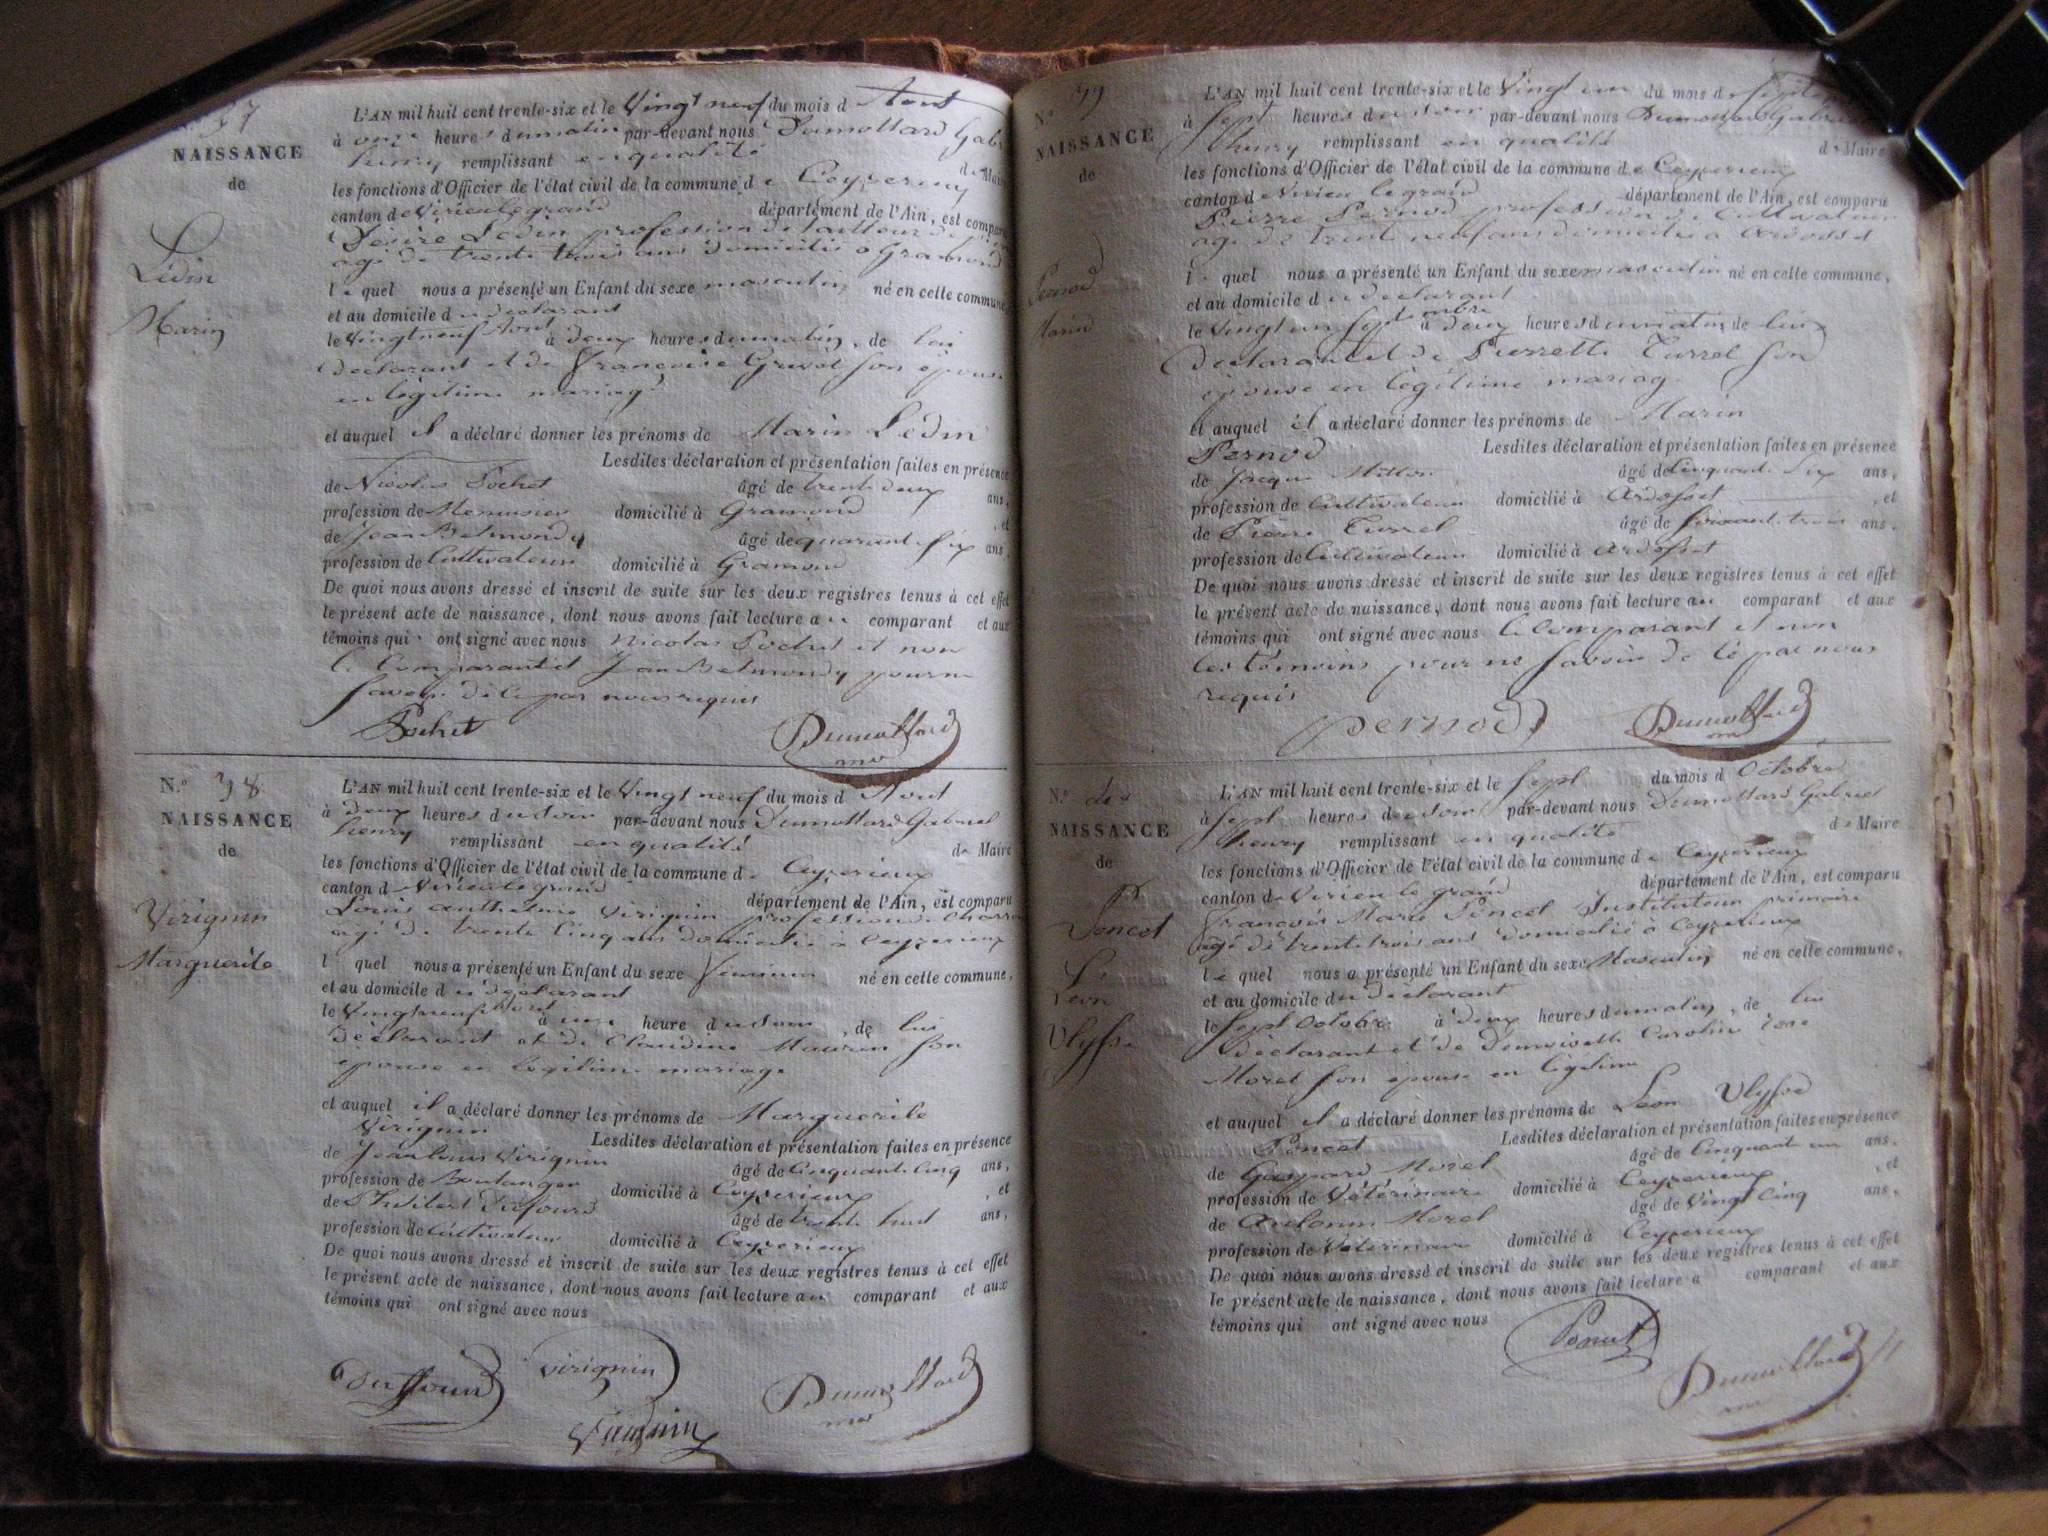 37
NAISSANCE
de
Ledin
Marin
L'AN mil huit cent trente-six et le Vingt neuf du mois d Aout
à onze heures dumatin par-devant nous Dumollard Gab
henry remplissant en qualité de Mai
les fonctions d'Officier de l'état civil de la commune de Ceyzerieux
canton de Virieulegrand département de l'Ain, est compa
Désiré Ledin profession de tailleur
agé de trente trois ans domicilié a Gramond
le quel nous a présenté un Enfant du sexe masculin né en cette commune
et au domicile du declarant
le Vingtneuf Aout à deux heures dumatin, de lui
declarant et de Françoise Grivot son épouse
en légitime mariage
et auquel il a déclaré donner les prénoms de Marin Ledin
Lesdites déclaration et présentation faites en présence
de Nicolas Pochet âgé de trente deux ans,
profession de Menuisier domicilié à Gramond, et
de Jean Belmondy âgé de quarante six ans,
profession de Cultivateur domicilié à Gramond
De quoi nous avons dressé et inscrit de suite sur les deux registres tenus à cet effet
le présent acte de naissance, dont nous avons fait lecture au comparant et aux
témoins qui ont signé avec nous Nicolas Pochet et non
le Comparant et Jean Belmondy pour ne
savoir de ce par nous requis
Pochet Dumollard
N.° 38
NAISSANCE
de
Virignin
Marguerite
L'AN mil huit cent trente-six et le Vingt neuf du mois d Aout
à deux heures du soir par-devant nous Dumollard Gabriel
henry remplissant en qualité de Maire
les fonctions d'Officier de l'état civil de la commune de Ceyzerieux
canton de Virieulegrand département de l'Ain, est comparu
Louis anthelme Virignin profession de Charron
agé de trente Cinq ans domicilié à Ceyzerieux
l quel nous a présenté un Enfant du sexe féminin né en cette commune,
et au domicile du déclarant
le Vingtneuf Aout à une heure du soir, de lui
déclarant et de Claudine Maurin son
épouse en légitime mariage
et auquel il a déclaré donner les prénoms de Marguerite
Virignin Lesdites déclaration et présentation faites en présence
de Jean Louis Virignin âgé de Cinquante Cinq ans,
profession de Boulanger domicilié à Ceyzerieux, et
de Philibert Dufourd âgé de trente huit ans,
profession de Cultivateur domicilié à Ceyzerieux
De quoi nous avons dressé et inscrit de suite sur les deux registres tenus à cet effet
le présent acte de naissance, dont nous avons fait lecture au comparant et aux
témoins qui ont signé avec nous
Duffourd Virignin Dumollard
N.° 39
NAISSANCE
de
Pernod
Marin
L'AN mil huit cent trente-six et le Vingt un du mois de
à Sept heures du soir par-devant nous Dumollard Gabriel
henry remplissant en qualité de Maire
les fonctions d'Officier de l'état civil de la commune de Ceyzerieux
canton de Virieu le grand département de l'Ain, est comparu
Pierre Pernod profession de Cultivateur
agé de trente neuf ans domicilié a Ardosset
le quel nous a présenté un Enfant du sexe masculin né en cette commune,
et au domicile du declarant
le Vingt un Septembre à deux heures du matin, de lui
declarant et de Pierrette Turrel son
épouse en légitime mariag
et auquel il a déclaré donner les prénoms de Marin
Pernod Lesdites déclaration et présentation faites en présence
de Jacque Millon âgé de Cinquante six ans,
profession de Cultivateur domicilié à Ardosset, et
de Pierre Turrel âgé de soixante trois ans,
profession de Cultivateur domicilié à Ardosset
De quoi nous avons dressé et inscrit de suite sur les deux registres tenus à cet effet
le présent acte de naissance, dont nous avons fait lecture au comparant et aux
témoins qui ont signé avec nous le Comparant et non
les témoins pour ne savoir de ce par nous
requis
pernod Dumollard
N.°
NAISSANCE
de
Poncet
Léon
Ulysse
L'AN mil huit cent trente-six et le Sept du mois d Octobre
à Sept heures du soir par-devant nous Dumollard Gabriel
henry remplissant en qualité de Maire
les fonctions d'Officier de l'état civil de la commune de Ceyzerieux
canton de Virieu le grand département de l'Ain, est comparu
François Marie Poncet Instituteur primaire
agé de trente trois ans domicilié a Ceyzerieux
le quel nous a présenté un Enfant du sexe Masculin né en cette commune,
et au domicile du déclarant
le Sept Octobre à deux heures du matin, de lui
déclarant et de Demoiselle Caroline Rose
Morel son épouse en légitime
et auquel il a déclaré donner les prénoms de Léon Ulysse
Poncet Lesdites déclaration et présentation faites en présence
de Gaspard Morel âgé de Cinquante un ans,
profession de Vétérinaire domicilié à Ceyzerieux, et
de Antonin Morel âgé de Vingt Cinq ans,
profession de Vétérinaire domicilié à Ceyzerieux
De quoi nous avons dressé et inscrit de suite sur les deux registres tenus à cet effet
le présent acte de naissance, dont nous avons fait lecture a comparant et aux
témoins qui ont signé avec nous
Poncet
Dumollard